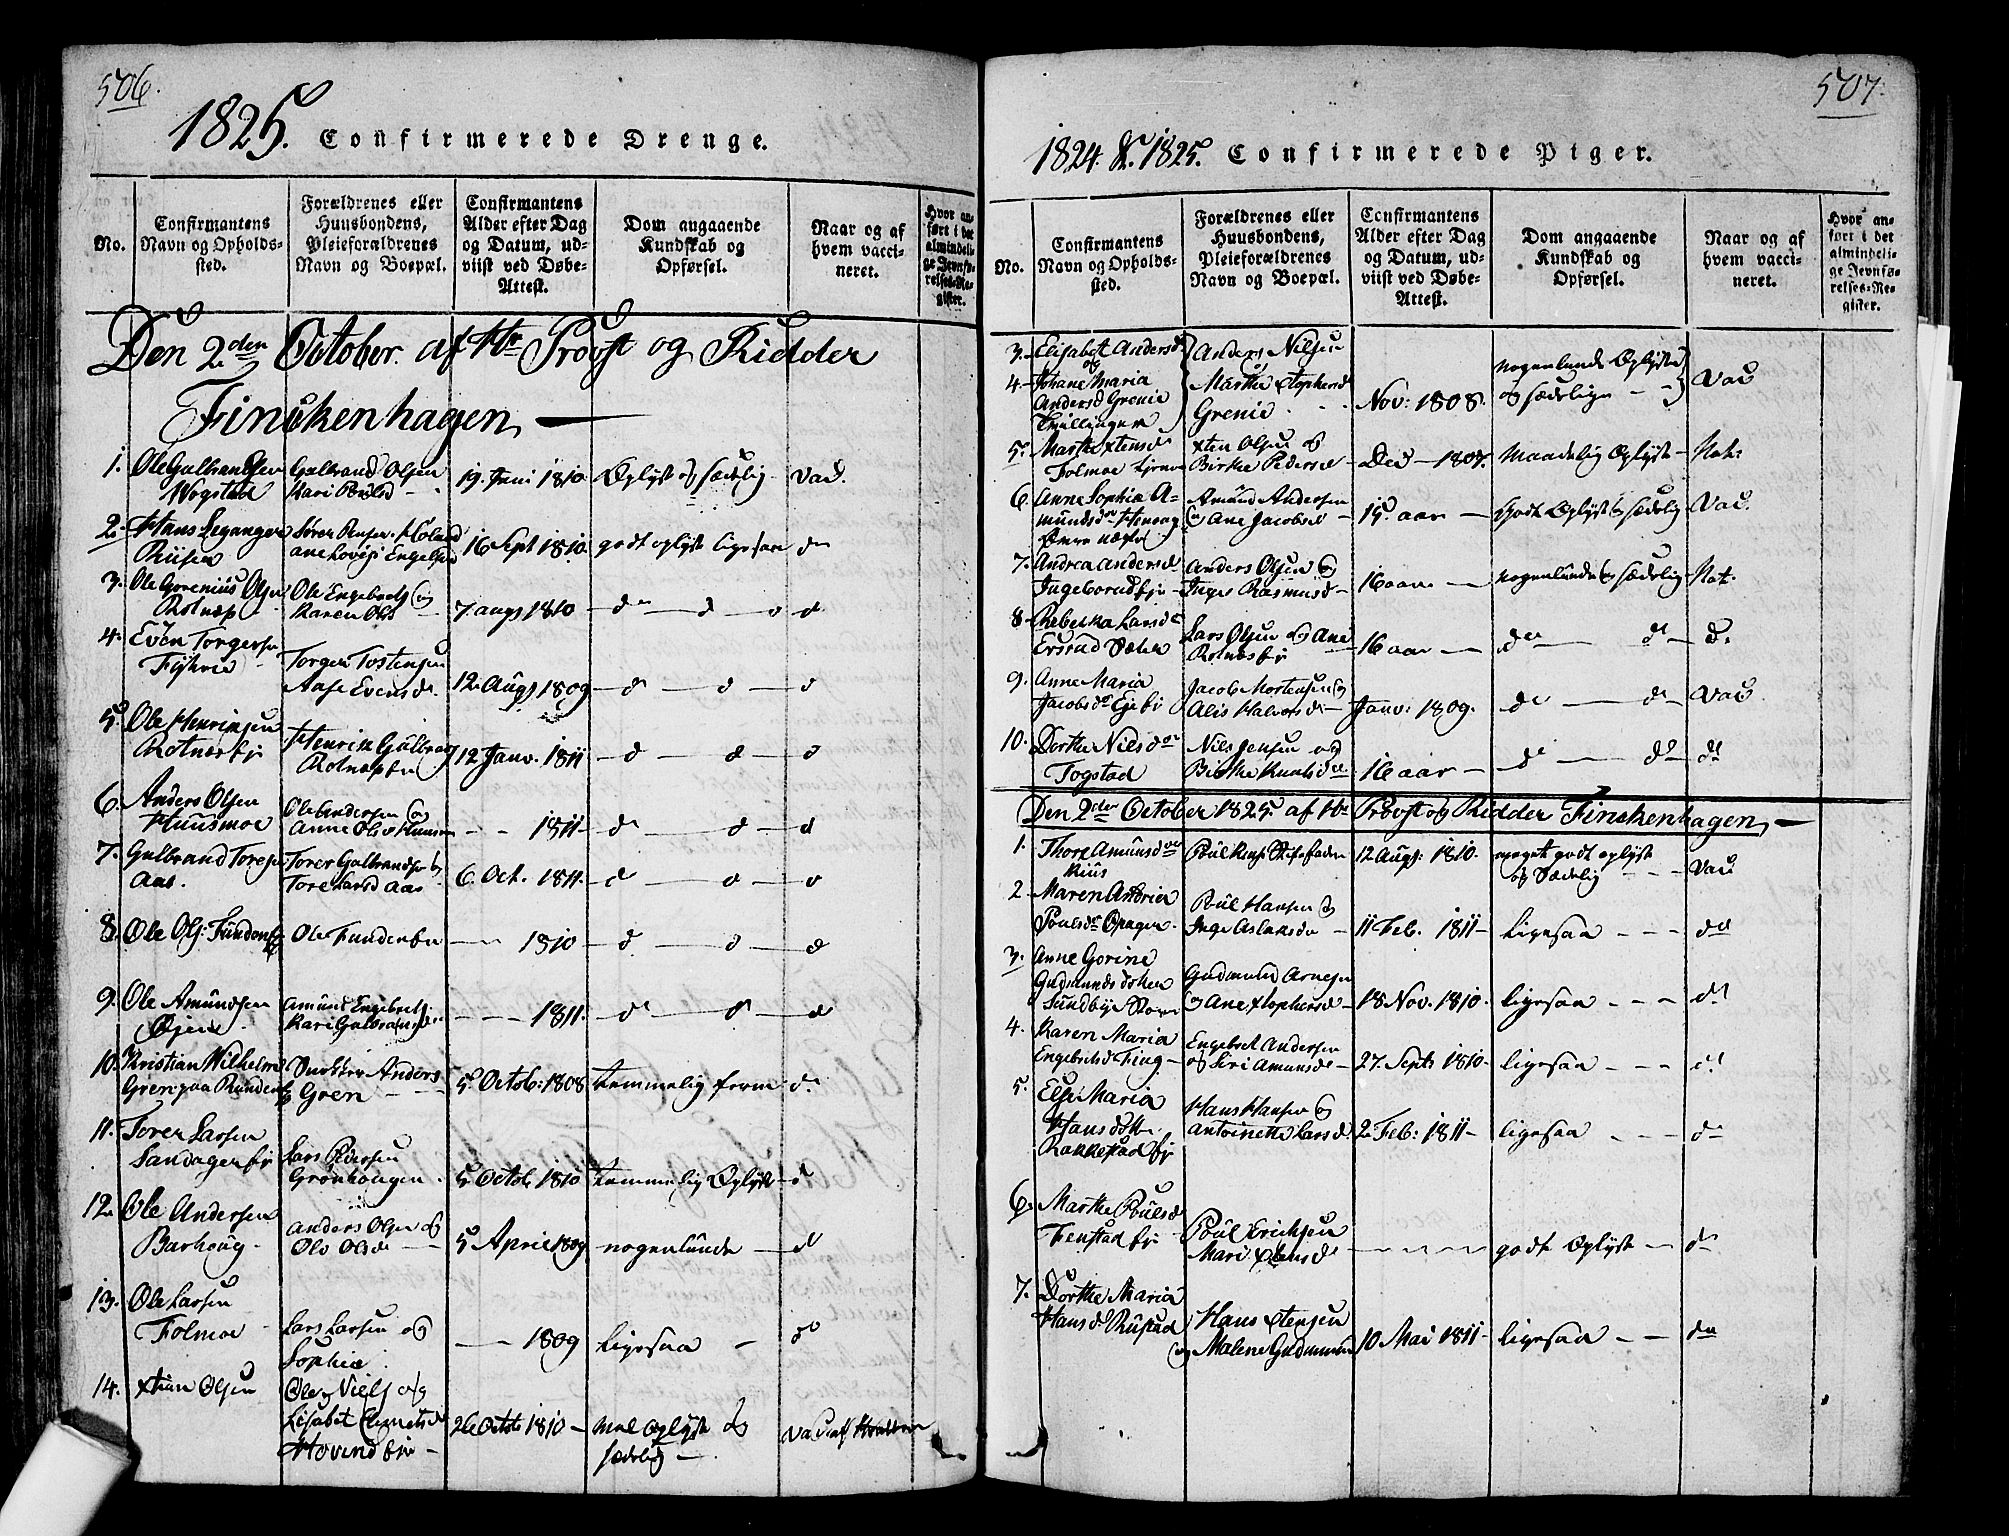 506.
1825. Confirmerede Drenge.
No.
Confirmantens
Navn og Opholds-
sted.
Forældrenes eller
Huusbondens,
Pleieforældrenes
Navn og Boepæl.
Confirmantens
Alder efter Dag
og Datum, ud-
viist ved Døbe-
Attest.
Dom angaaende
Kundskab og
Opførsel.
Naar og af
hvem vacci-
neret.
Hvor an-
ført i det
almindeli-
ge Jevnfø-
relses-Re-
gister.
Den 2den October af Hr Provst og Ridder
Finckenhagen
1. Ole Gulbrandsen
Wogstad
Gulbrand Olsen
Kari Poulsd
19. Juni 1810
Oplyst og sædelig
Vac.
2. Hans Leganger
Riiser
Ane Lovise Engelsen
16 Sept 1810
godt oplyst ligesaa
do
3. Ole Gorenius Olsen
Rotnæs
Ole Engebrets og
Karen Olsd
7 augs 1810
do d d
4. Even Torgersen
Torger Tostensen
Aase Evensd.
12 Augs 1809
d d d
5. Ole Henriksen
Rotnes
Henrik Gulbran
Rotnæs
12 Janv. 1811
d d d
6. Anders Olsen
Huusmoe
Ole Andersen og
Anne Olsd Huusm
1811
d d d
7. Gulbrand Toresen
Aas.
Torer Gulbrandsen og
Tore Larsd Aas
6. Oct. 1811
d d d
8. Ole Ols: Funder
Ole Funder
1810
d d d
9. Ole Amundsen
Amund Engebrets
Kari Gulbransd
1811.
d d d
10. Kristian Wilhelm
Gren paa
Anders
Gren
5 Octob: 1808
temmelig
do
11. Torer Larsen
Sandager
Lars Pedersen
Grønhaugen
5 Octob 1810
temmelig Oplyst
d
12. Ole Andersen
Barhoug
Anders Olsen og
Olo Olsd
5 April 1809
nogenlunde
d
13. Ole Larsen
Tolmoe
Lars Larsen og
Sophia
1809
ligesaa
do
14. Xtian Olsen
Ole Niels og
Lisabet Clemetsd
Hovind
26 Octob 1810
vel oplyst og
sædelig
Vac af
507.
1824 & 1825. Confirmerede Piger.
No.
Confirmantens
Navn og Opholds-
sted.
Forældrenes eller
Huusbondens,
Pleieforældrenes
Navn og Boepæl.
Confirmantens
Alder efter Dag
og Datum, ud-
viist ved Døbe-
Attest.
Dom angaaende
Kundskab og
Opførsel.
Naar og af
hvem vacci-
neret.
Hvor an-
ført i det
almindeli-
ge Jevnfø-
relses-Re-
gister.
3. Elisabet Andersd
og
4. Johane Maria
Andersd Grenie
Tvillinger
Anders Nilsen
Marthe Xtophersd
Grenie
Nov: 1808.
nogenlunde Oplyste
og sædelige
Vac
5. Marthe Xtensd
Tolmoe
Xten Olsen og
Birthe Pedersd
Dec 1807.
Maadelig Oplyst
Nat.
6. Anne Sophia A-
mundsd
Amund Andersen
og Ane Jacobsd
15. aar
godt Oplyst og sædelig
Vac.
7. Andrea Andersd
Ingeborud
Anders Olsen og
Inger Rasmusd
16 aar
nogenlunde og sædelig
Nat.
8. Rebekka Larsd
Lars Olsen og Ane
Rotnæs
16 aar
do do
d.
9. Anne Maria
Jacobsd
Jacob Mortensen og
Alis Halvorsd
Janv: 1809.
do do
Vac.
10. Dorthe Nielsd
Togstad
Niels Jensen og
Birthe Knutsd
16 aar
do do
do
Den 2den October 1825 af Hr Provst og Ridder Finckenhagen
1. Thore Amunsd
Riiis
Poul Stifefader
12 Augs: 1810.
meget godt oplyst
og Sædelig
Vac
2. Maren Andrea
Poulsd
Poul Hansen og
Inge Aslaksd
11 Feb. 1811
ligesaa
do
3. Anne Gorine
Gudmundsdotter
Sundbye
Gudmund Arnesen
og Ane Xtophersd
18 Nov. 1810.
ligesaa
do
4. Karen Maria
Engebretsd Ting
Engebret Andersen
og Siri Amunsd
27. Sept 1810
ligesaa
do
5. Else Maria
Hansdotter
Rakkestad
Hans Hansen og
Antoinette Larsd
2 Feb: 1811
ligesaa
do
6. Marthe Poulsd
Fenstad
Poul Erichsen
Mari
godt Oplyst
do
7. Dorthe Maria
Hansd Rustad
Hans Xtensen
og Malene Gudmunsd
10 Mai 1811
ligesaa
do